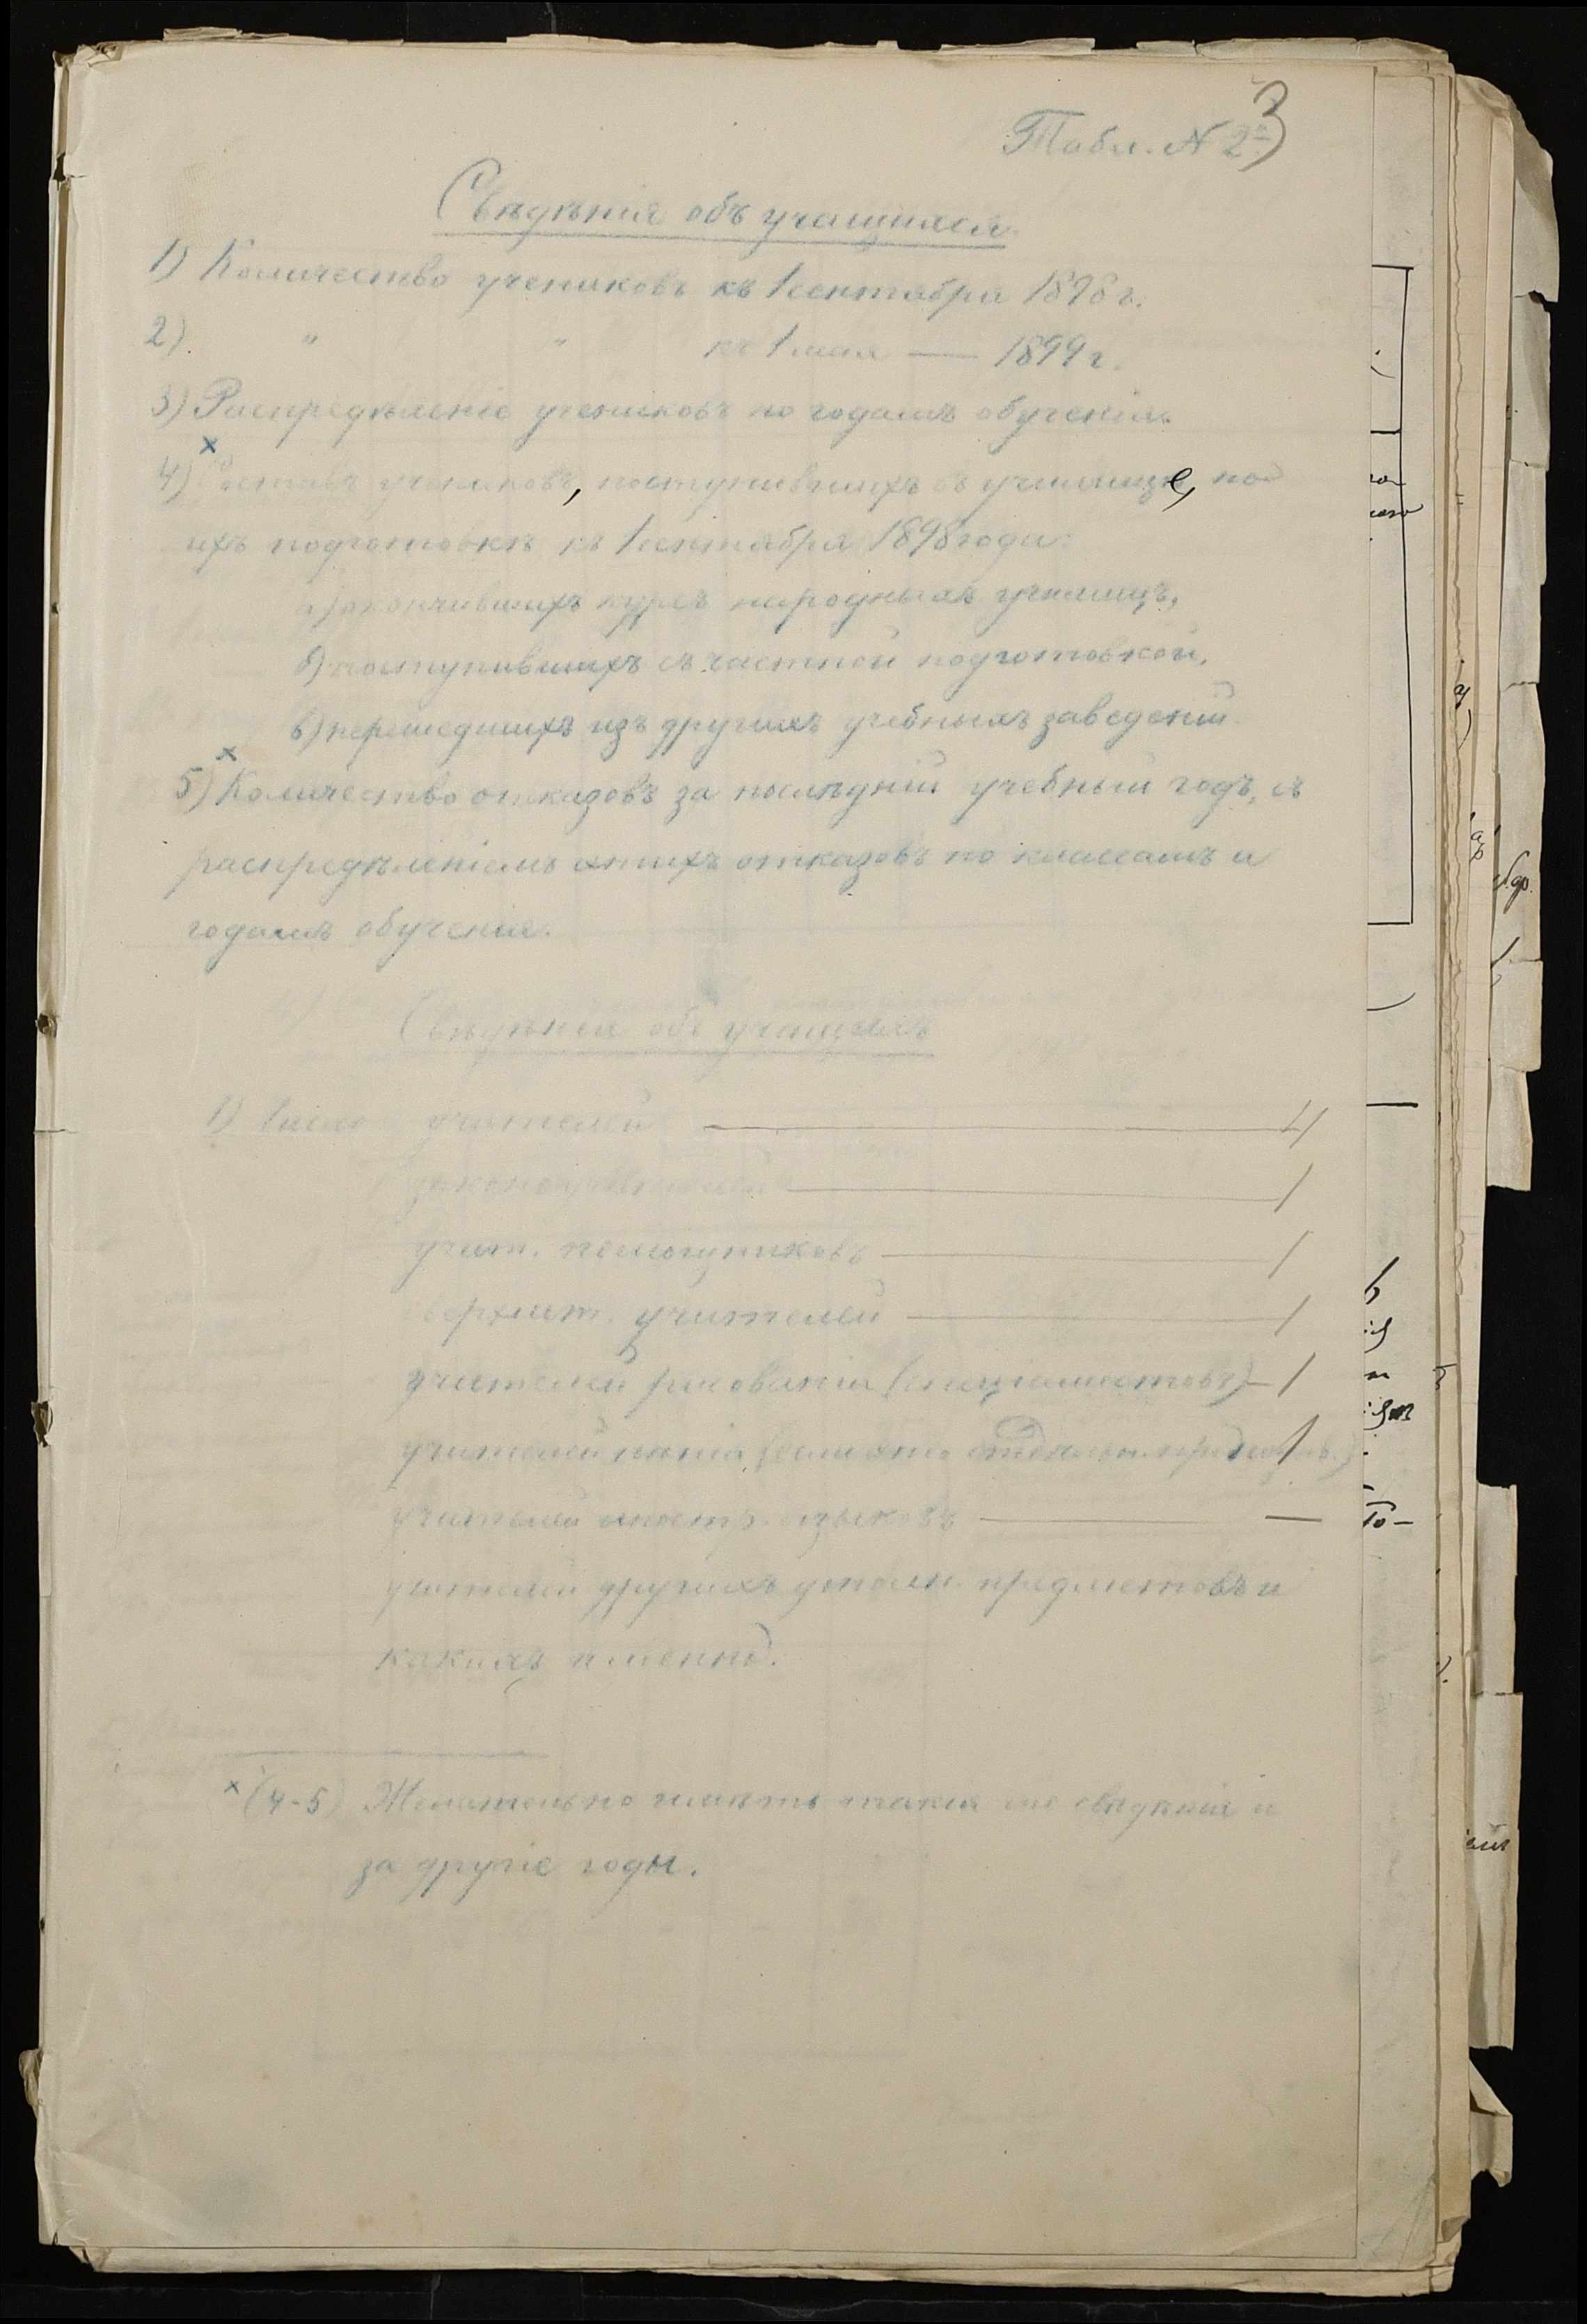 3
Табл. № 2й
Свѣдѣнія объ учащихся.
1) Количество учениковъ къ 1 сентября 1898 г.
2) " " къ 1 мая — 1899 г.
3) Распредѣленіе учениковъ по годамъ обученія.
4) × Составъ учениковъ, поступившихъ въ училище, по
ихъ подготовкѣ къ 1 сентября 1898 года:
а) окончившихъ курсъ народныхъ училищъ,
б) поступившихъ съ частной подготовкой,
в) перешедшихъ изъ другихъ учебныхъ заведеній.
5) × Количество отказовъ за послѣдній учебный годъ, съ
распредѣленіемъ этихъ отказовъ по классамъ и
годамъ обученія.
Свѣдѣнія объ учащихъ
1) Число учителей — 4
законоучителей — 1
учит. помощниковъ — 1
сверхшт. учителей — 1
учителей рисованія (спеціалистовъ) — 1
учителей пѣнія (если это отдѣльн. предметъ) 1
учителей иностр. языковъ — —
учителей другихъ дополн. предметовъ и
какихъ именно.
× (4-5) Желательно имѣть такія же свѣдѣнія и
за другіе годы.